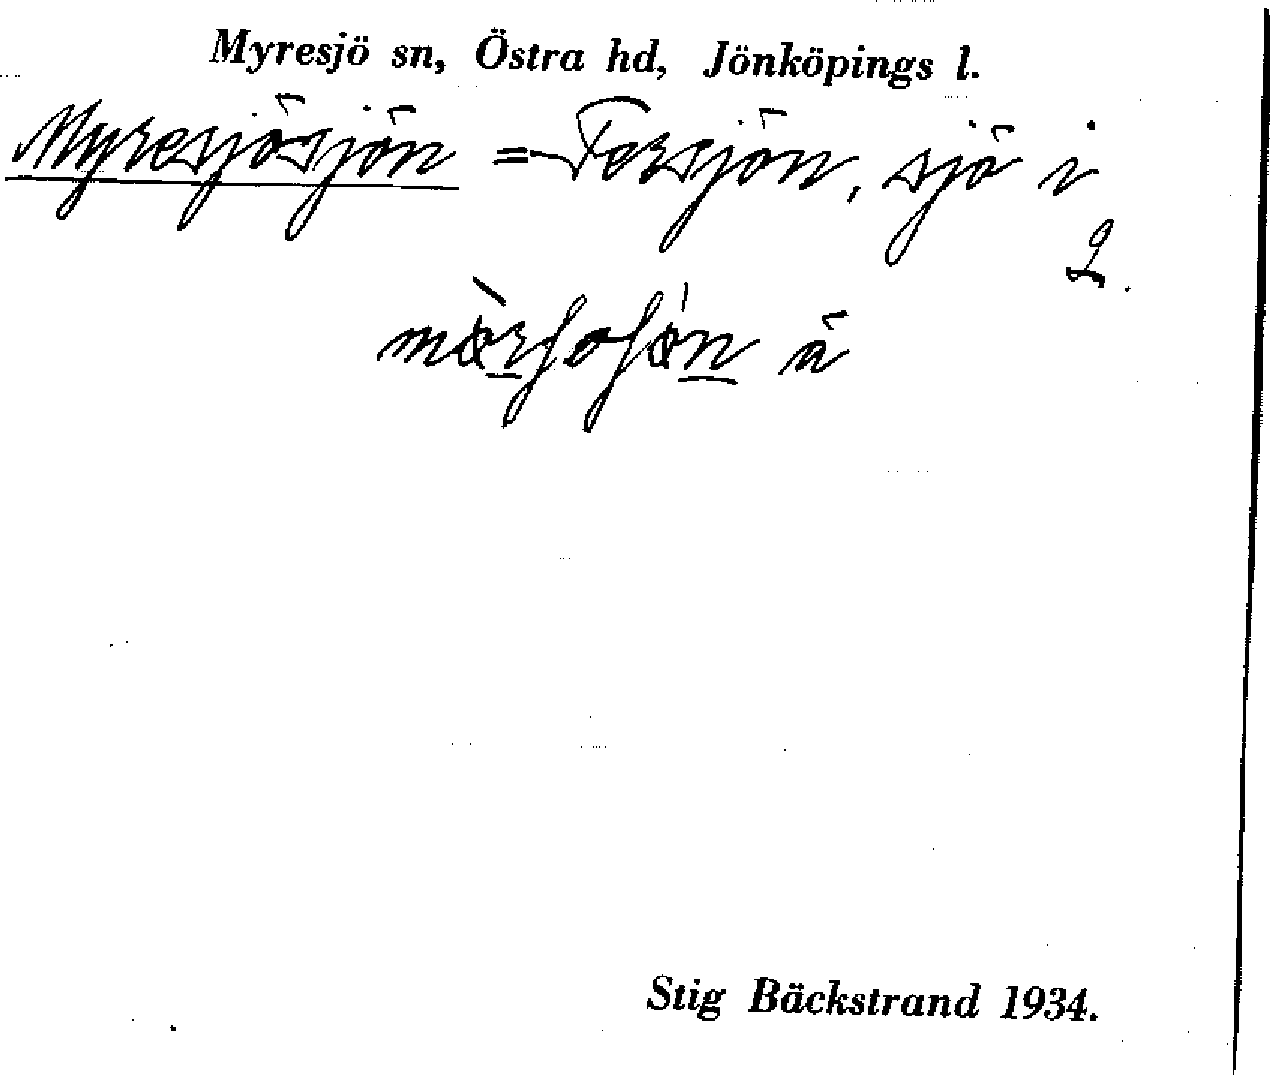 Myresjö sn, Östra hd, Jönköpings l.
Myresjösjön = Torsjön, sjö i
2.
å
Stig Bäckstrand 1934.